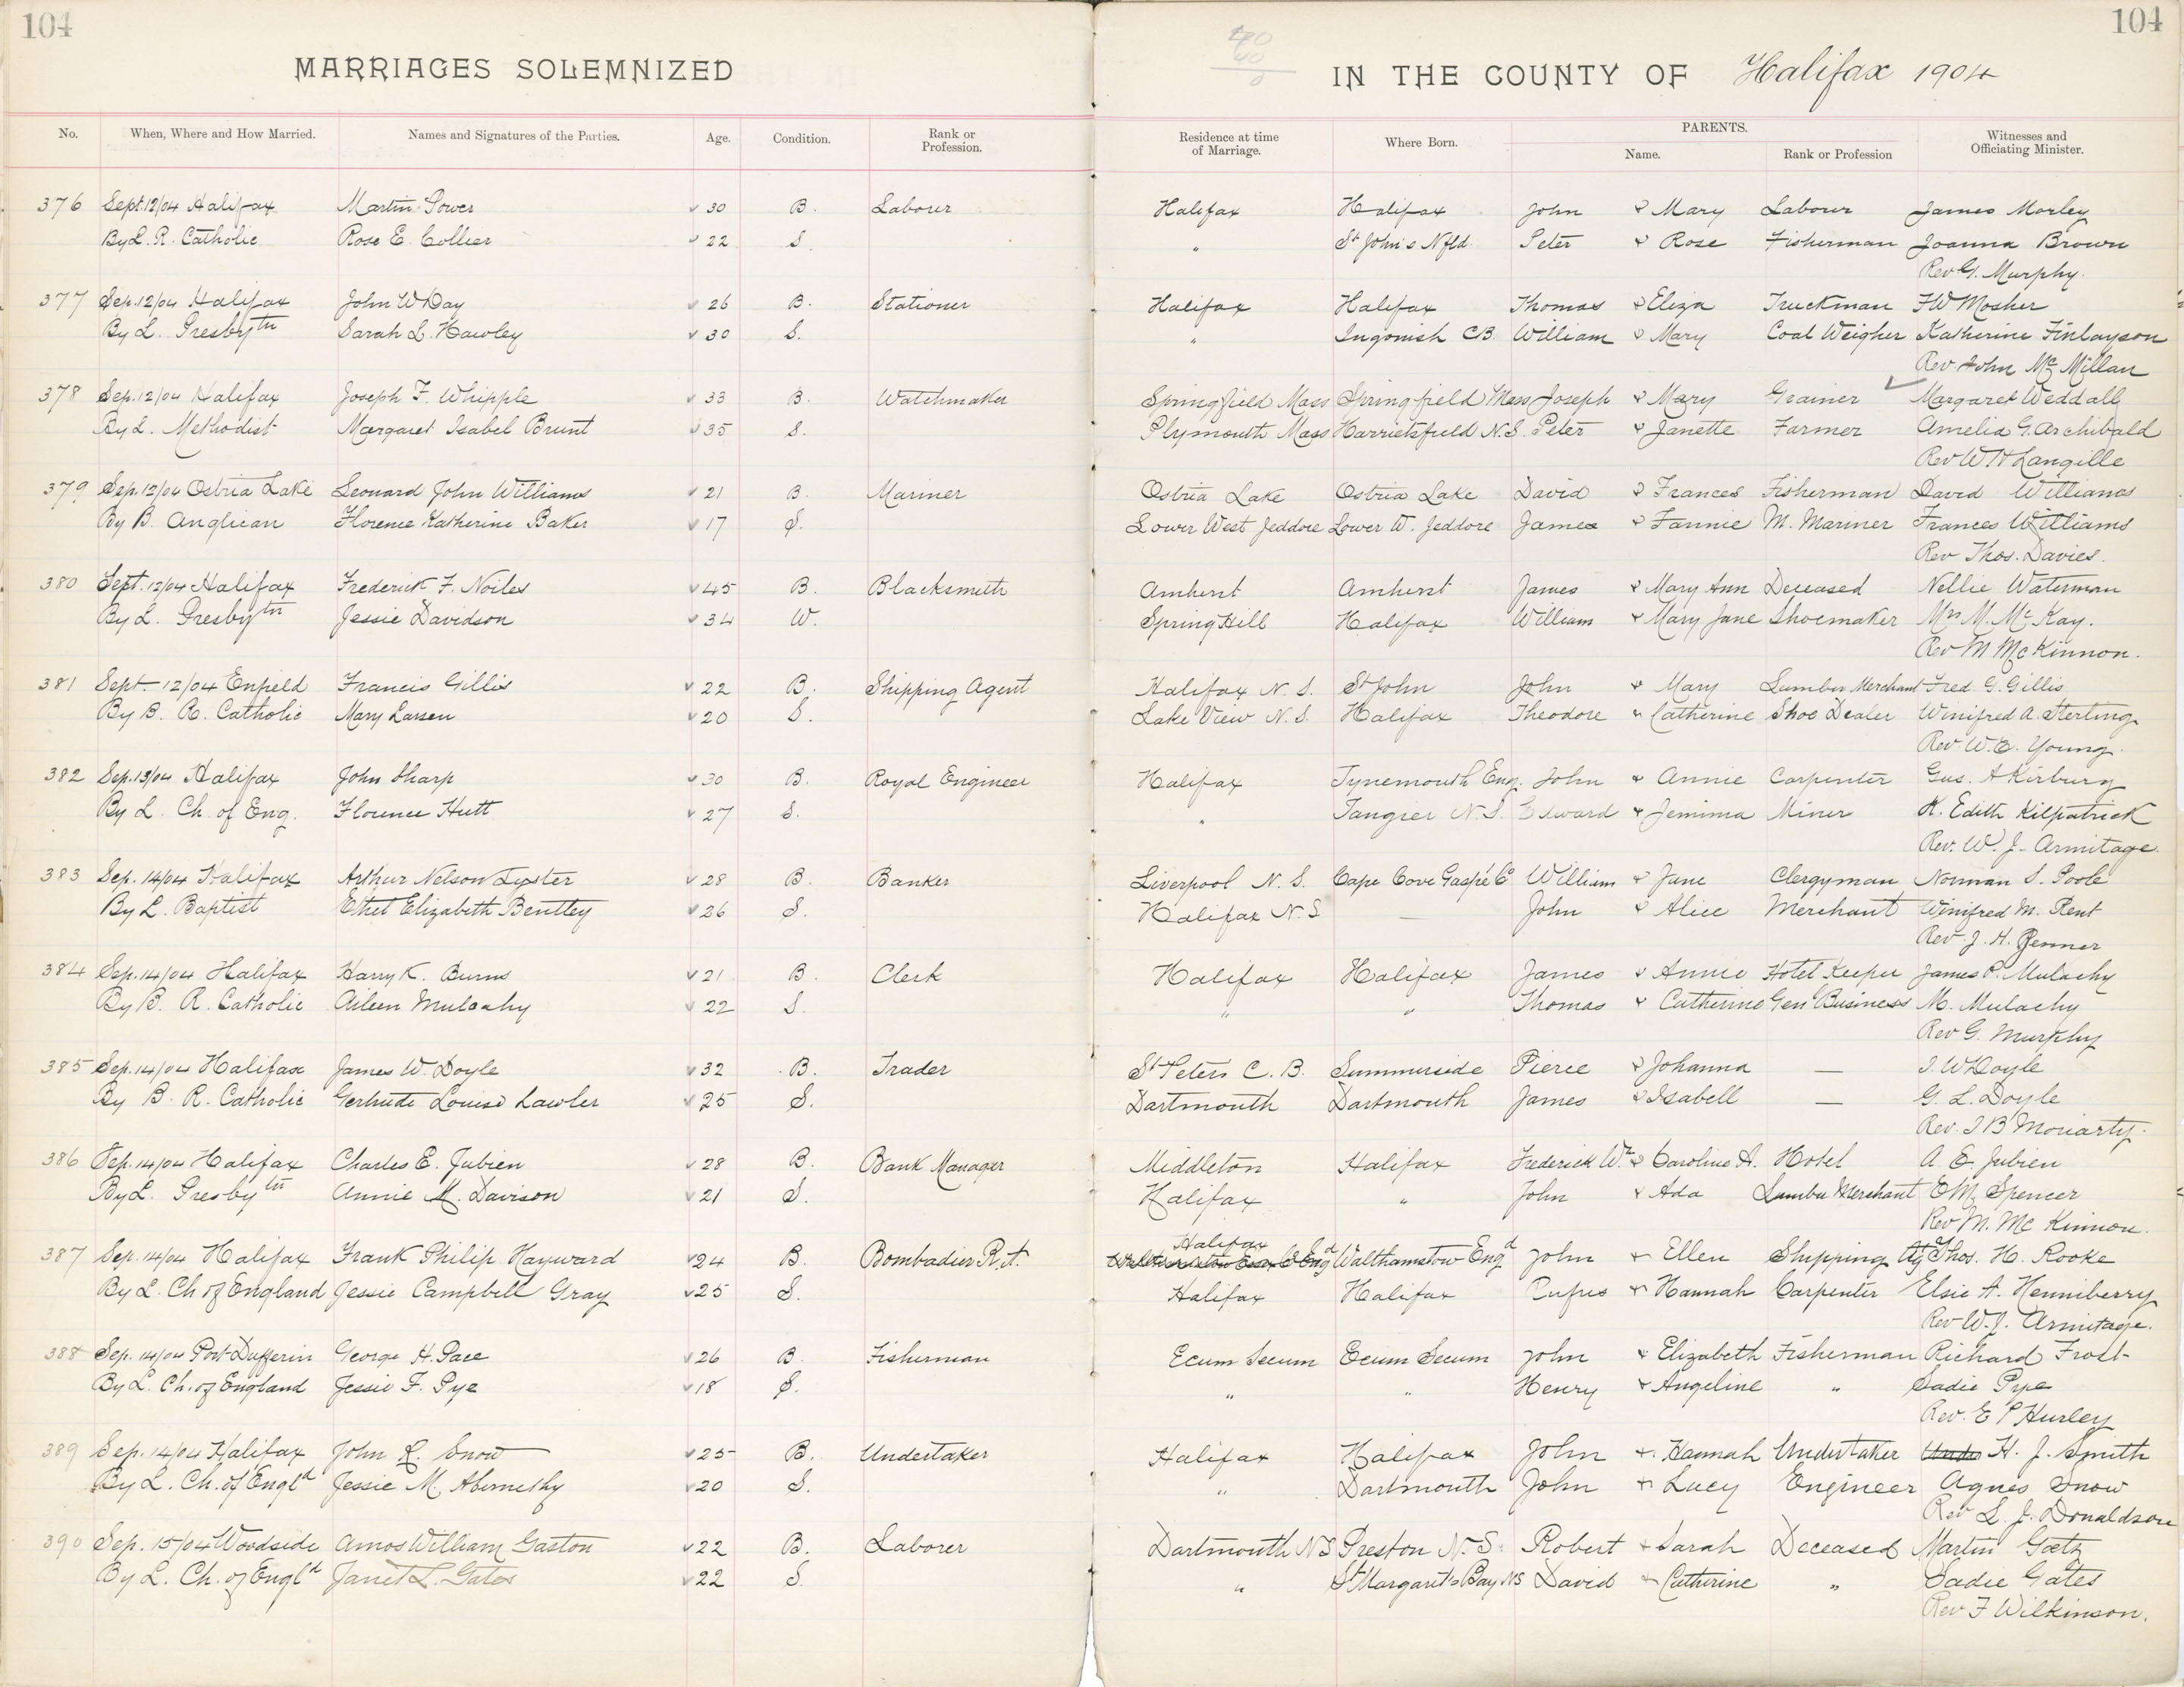 104
104
MARRIAGES SOLEMNIZED
IN THE COUNTY OF Halifax 1904
No. When, Where and How Married. Names and Signatures of the Parties. Age. Condition. Rank or Profession. Residence at time of Marriage. Where Born. PARENTS. Name. Rank or Profession Witnesses and Officiating Minister.
376 Sept. 12/04 Halifax Martin Power 30 B. Labourer Halifax Halifax John & Mary Labour James Morley
By L. R. Catholic Rose E. Collier 22 S. " St John's Nfld. Peter & Rose Fisherman Joanna Brown
Rev G. Murphy.
377 Sep. 12/04 Halifax John W Day 26 B. Stationer Halifax Halifax Thomas & Eliza Truckman F W Mosher
By L. Presbytn Sarah L. Hawley 30 S. " Ingonish CB. William & Mary Coal Weigher Katherine Finlayson
Rev John McMillan
378 Sep. 12/04 Halifax Joseph F. Whipple 33 B. Watchmaker Springfield Mass Springfield Mass Joseph & Mary Grainer Margaret Weddall
By L. Methodist Margaret Isabel Brunt 35 S. Plymouth Mass Harrietsfield N.S. Peter & Janette Farmer Amelia G. Archibald
Rev W H Langille
379 Sep. 12/04 Ostria Lake Leonard John Williams 21 B. Mariner Ostria Lake Ostria Lake David & Frances Fisherman David Williams
By B. Anglican Florence Katherine Baker 17 S. Lower West Jeddore Lower W. Jeddore James & Fannie M. Mariner Frances Williams
Rev Thos. Davies.
380 Sept. 12/04 Halifax Frederick F. Noiles 45 B. Blacksmith Amherst Amherst James & Mary Ann Deceased Nellie Waterman
By L. Presbytn Jessie Davidson 34 W. Spring Hill Halifax William & Mary Jane Shoemaker Mrs M. McKay.
Rev M McKinnon.
381 Sept. 12/04 Enfield Francis Gillis 22 B. Shipping Agent Halifax N. S. St John John & Mary Lumber Merchant Fred. G. Gillis
By B. R. Catholic Mary Larsen 20 S. Lake View N. S. Halifax Theodore " Catherine Shoe Dealer Winifred A. Sterling
Rev W. E. Young.
382 Sep. 13/04 Halifax John Sharp 30 B. Royal Engineer Halifax Tynemouth Eng. John & Annie Carpenter Gus. A Kirburg
By L. Ch. of Eng. Florence Hutt 27 S. " Tangier N. S. Edward & Jemima Miner H. Edith Kilpatrick
Rev. W. J. Armitage.
383 Sep. 14/04 Halifax Arthur Nelson Lyster 28 B. Banker Liverpool N. S. Cape Cove Gaspé Co William & Jane Clergyman Norman S. Poole
By L. Baptist Ethel Elizabeth Bentley 26 S. Halifax N. S — John & Alice Merchant Winifred M. Rent
Rev J. H. Jenner
384 Sep. 14/04 Halifax Harry K. Burns 21 B. Clerk Halifax Halifax James & Annie Hotel Keeper James P. Mulachy
By B. R. Catholic Aileen Mulcahy 22 S. " " Thomas & Catherine Gen Business M. Mulachy
Rev G. Murphy
385 Sep. 14/04 Halifax James W. Doyle 32 B. Trader St Peters C. B. Summerside Pierce & Johanna — J. W Doyle
By B. R. Catholic Gertrude Louise Lawler 25 S. Dartmouth Dartmouth James & Isabell — G. L. Doyle
Rev. J B Moriarty.
386 Sep. 14/04 Halifax Charles E. Jubien 28 B. Bank Manager Middleton Halifax Frederick Wm & Caroline A. Hotel A. E. Jubien
By L. Presbytn Annie M. Davison 21 S. Halifax " John & Ada Lumber Merchant E M Spencer
Rev M. McKinnon.
387 Sep. 14/04 Halifax Frank Philip Hayward 24 B. Bombadier R. A. Halifax Walthamstow Engd John & Ellen Shipping Ag Thos. H. Rooke
By L. Ch of England Jessie Campbell Gray 25 S. Halifax Halifax Rufus & Hannah Carpenter Elsie A. Henniberry
Rev W. J. Armitage.
388 Sep. 14/04 Port Dufferin George H. Pace 26 B. Fisherman Ecum Secum Ecum Secum John & Elizabeth Fisherman Richard Frost
By L. Ch. of England Jessie F. Pye 18 S. " " Henry & Angeline " Sadie Pye
Rev. E P Hurley
389 Sep. 14/04 Halifax John R. Snow 25 B. Undertaker Halifax Halifax John & Hannah Undertaker H. J. Smith
By L. Ch. of Engld Jessie M. Abernethy 20 S. " Dartmouth John & Lucy Engineer Agnes Snow
Rev L. J. Donaldson
390 Sep. 15/04 Woodside Amos William Gaston 22 B. Laborer Dartmouth NS Preston N. S. Robert & Sarah Deceased Martin Gatz
By L. Ch. of Engld Janet L. Gates 22 S. " St Margaret's Bay NS David & Catherine " Sadie Gates
Rev F Wilkinson.